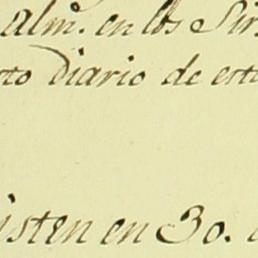 alm.ͤ en los Sir
to diario de est
isten en 30.